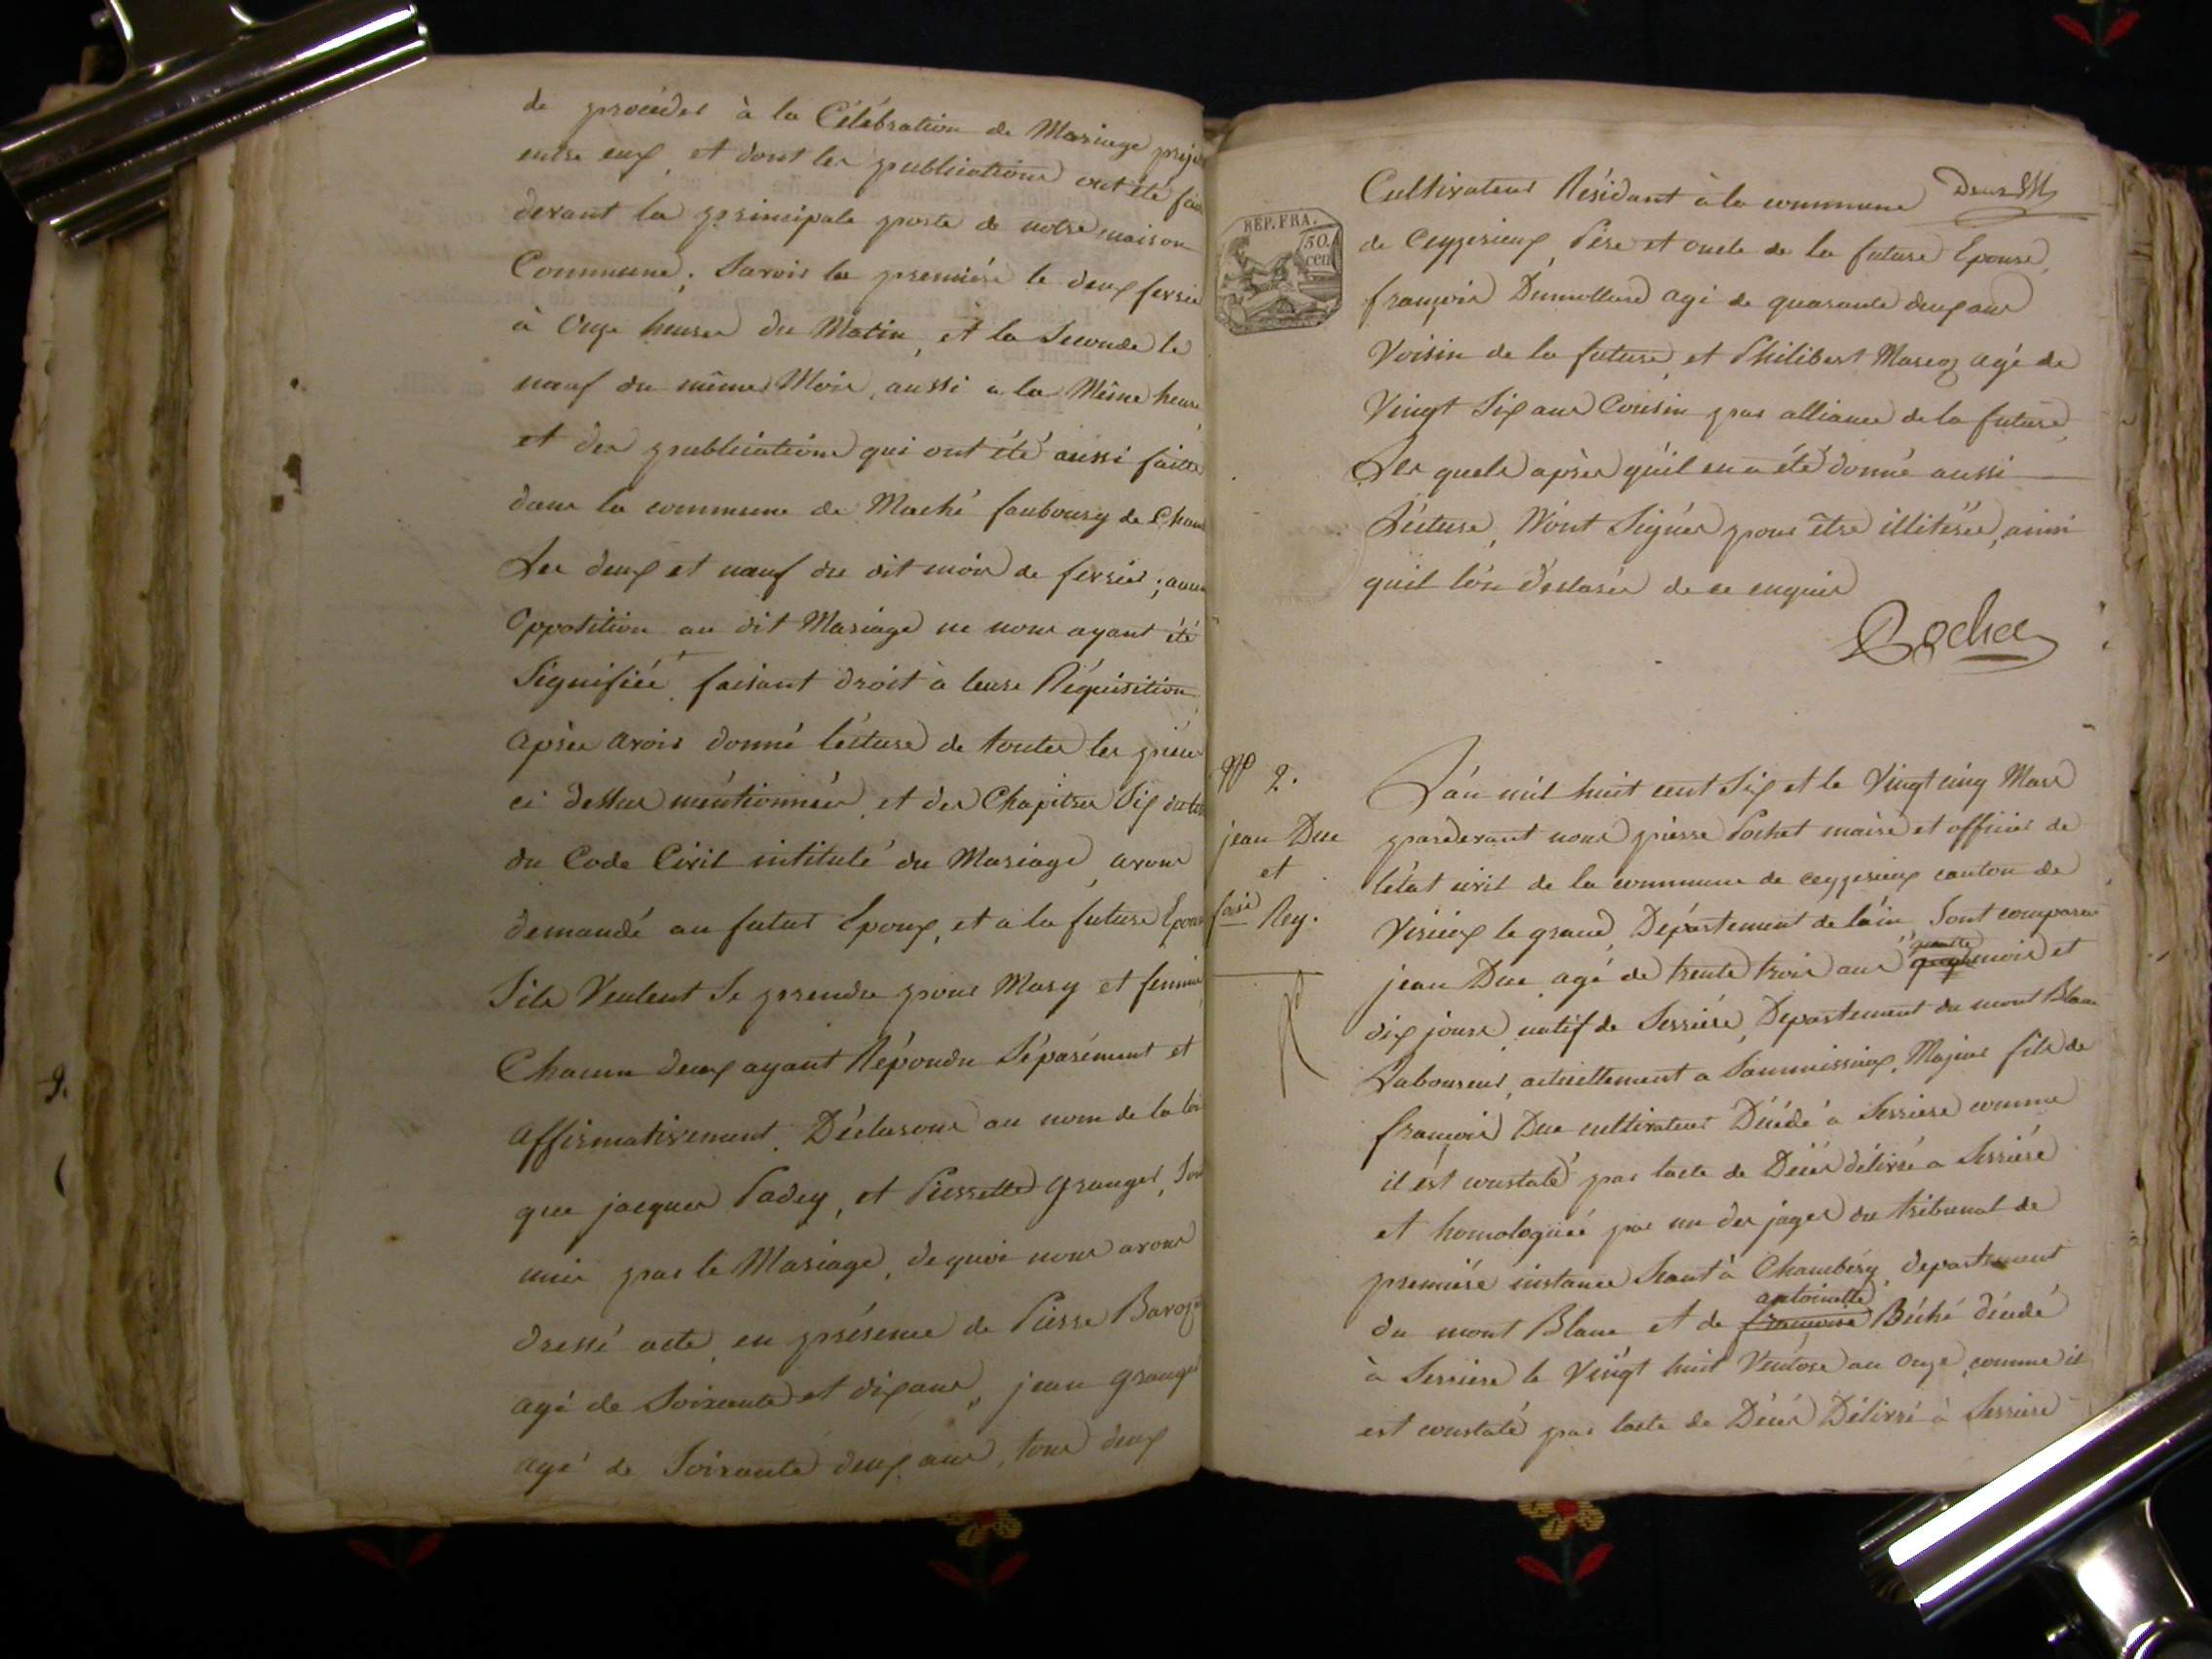 de procéder à la Célébration de Mariage proje
entre eux, et dont les publications ont été fai
devant la principale porte de notre maison
Commune; Savoir la première le deux fevrie
à Onze heures du Matin, et la Seconde le
neuf du même Mois, aussi a la Même heure
et des publications qui ont été aussi faites
dans la commune de Maché faubourg de Cham
Les deux et neuf du dit mois de fevrier; aucu
Opposition au dit Mariage ne nous ayant été
Signifiée, faisant droit à leurs Réquisition
après avoir donné lécture de toutes les pièce
ci dessus méntionnées, et des Chapitre Six du
du Code Civil intitulé du Mariage, avons
demandé au futur Epoux, et a la future Epous
S'ils Veulent Se prendre pour Mary et femme
Chacun deux ayant Répondu Séparément et
affirmativement. Déclarons au nom de la loi
que jacques Padey, et Pierrette granger, Son
unis par le Mariage, de quoi nous avons
dressé acte, en présence de Pierre Baroz
agé de Soixante et dix ans, jean grange
agé de Soixante deux ans, tous deux
9.
Cultivateurs Résidant à la commune
REP. FRA.
50. cen
de Ceyzerieux, Père et oncle de la future Epouse,
françois Dumollard agé de quarante deux ans
Voisin de la future, et Philibert Marcoz agé de
Vingt Six ans Cousin par alliance de la future,
Les quels après qu'il en a été donné aussi
Lécture, N'ont Signés pour être illitérés, ainsi
quil l'on déclarés de ce enquis
Pochet
N° 2.
jean Duc
et
fçoise Rey.
L'an mil huit cent Six et le Vingt cinq Mars
pardevant nous pierre Pochet maire et officier de
l'état civil de la commune de ceyzerieux canton de
Virieux le grand, Département de l'ain Sont comparus
jean Duc agé de trente trois ans quatre mois et
dix jours, natif de Serriére, Departement du mont Blanc
Laboureur, actuellement a Sammissieux, Majeur fils de
françois Duc cultivateur Décédé à Serriere comme
il est constaté par lacte de Décés délivré a Serriére
et homologuée par un des juges du tribunal de
premiére instance Séant à Chambéry, departement
du mont Blanc et de françoise antoinette Béché décédé
à Serriere le Vingt huit Ventose an Onze, comme il
est constaté par lacte de Décés Délivré à Serriere